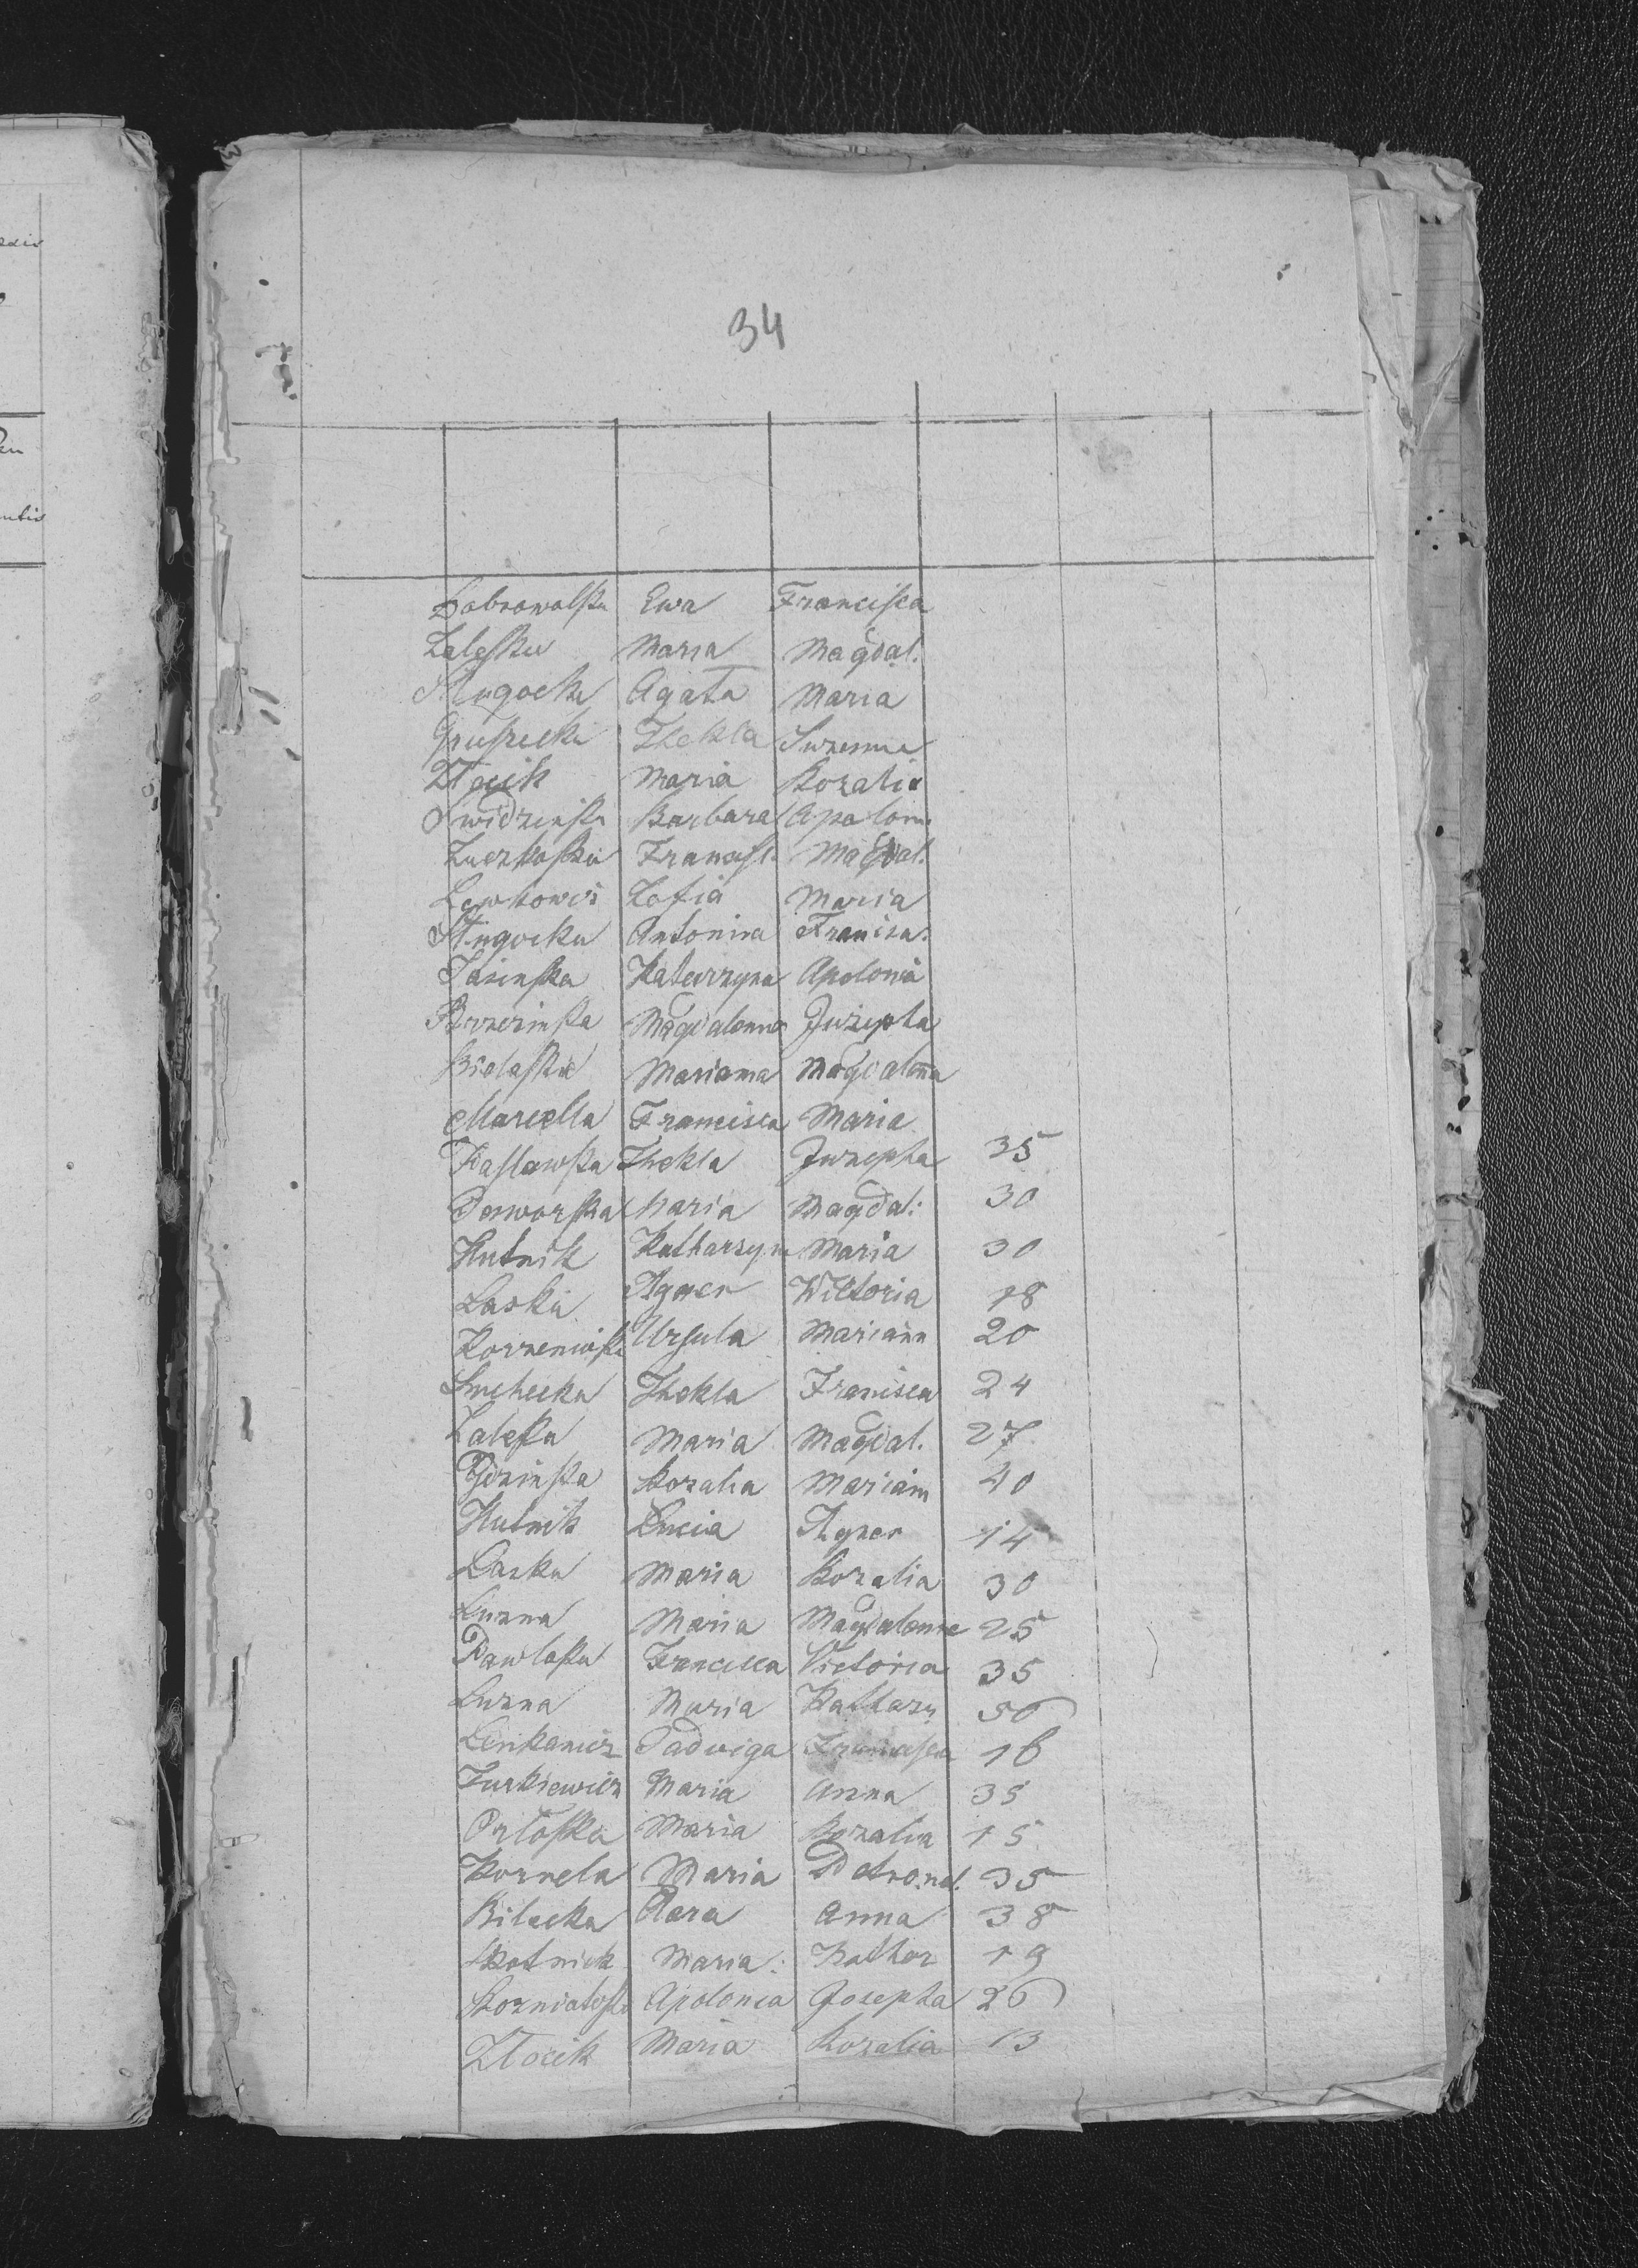 34
Dobrowolska Ewa Francisca
Zaleska Maria Magdal.
Slugocka Agata Maria
Gruszecki Thekla Suzanna
Zlocik Maria Rozalia
Swidzinska Barbara Apolon.
Francisc. Magdal.
Lewkowi Zofia Maria
Slugocka Antonina Francisa.
Jasinska Katarzyna Apolonia
Brzezinska Magdalenna Juzepta
Bielaska Marianna Magdalenna
Marcella Francisca Maria
Paslawska Thekla Juzepha 35
Jaworska Maria Magdal: 30
Hutnik Katharzyn Maria 30
Laska Agner Wiktoria 18
Korzeniwska Ursula Mariann 20
Suchecka Thekla Francisca 24
Zaleska Maria Magdal. 27
Rozalia Mariann 40
Hutnik Lucia Agner 14
Laska Maria Rozalia 30
Luzna Maria Magdalenna 25
Pawloska Francisca Victoria 35
Luzna Maria Kathazy 50
Jadwiga Francisca 16
Zurkiewicz Maria Anna 35
Orloska Maria Rozalia 15
Kornela Maria Petronel. 35
Bilecka Clara Anna 38
Kotnick Maria: Kathar 19
Kozniatoska Apolonia Josepha 26
Zlocik Maria Rozalia 13